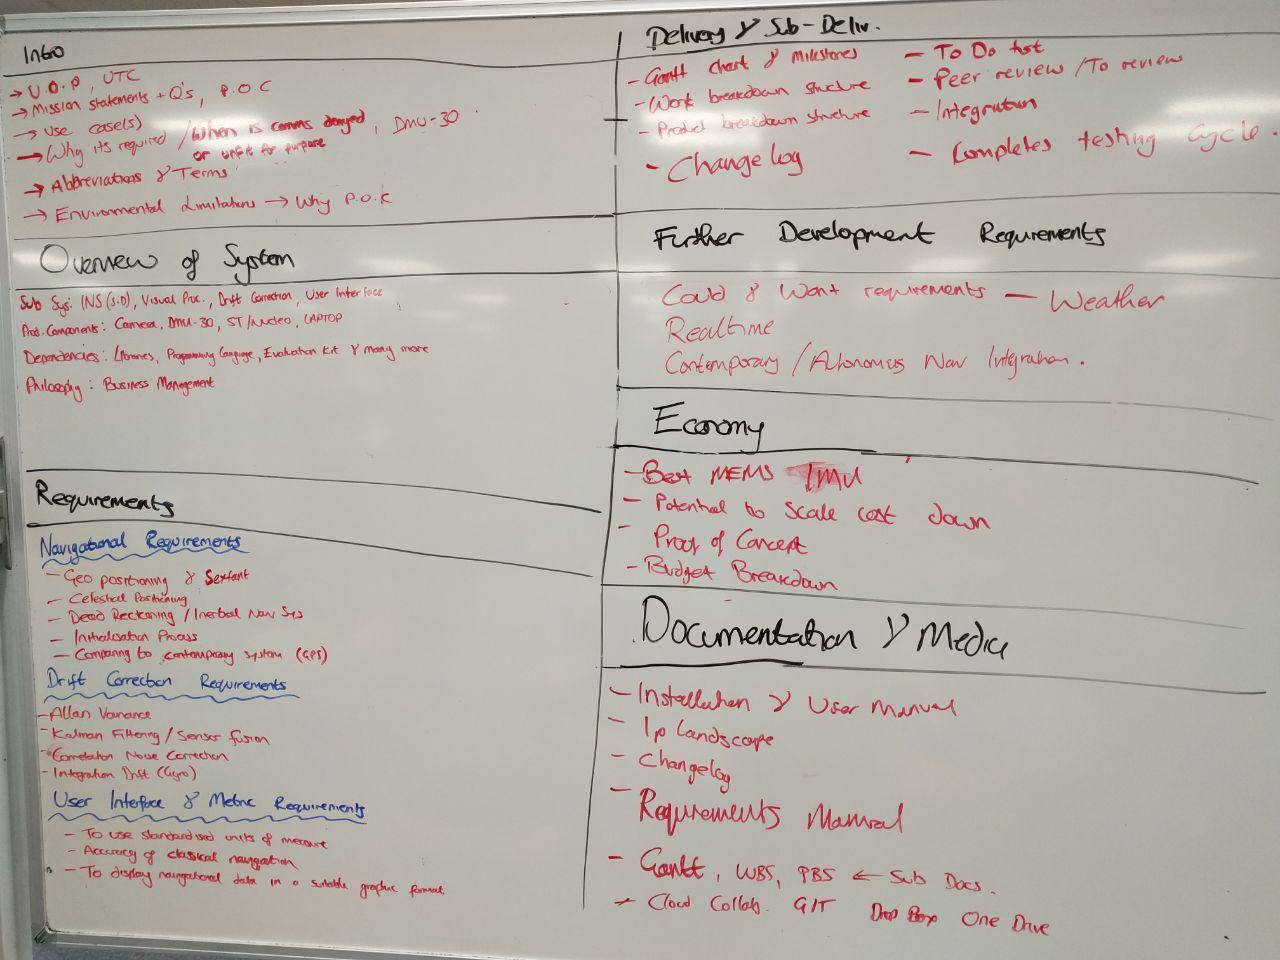 Intro
→ U.O.P, UTC
→ Mission statements + Q's, P.O.C
→ Use case(s)
→ Why its required / When is comms denyed, DMU-30
or unfit for purpose
→ Abbreviations & Terms
→ Environmental Limitations → Why P.O.C
Overview of System
Sub Sys: INS (S.D), Visual Proc., Drift Correction, User Interface
Prod. Components: Camera, DMU-30, ST/Nucleo, LAPTOP
Dependencies: Libraries, Programming Language, Evaluation Kit & many more
Philosophy: Business Management
Requirements
Navigational Requirements
- Geo positioning & Sextant
- Celestial Positioning
- Dead Reckoning / Inertial Nav Sys
- Initialisation Process
- Comparing to contemporary system (GPS)
Drift Correction Requirements
- Allan Variance
- Kalman Filtering / Sensor fusion
- Correlation Noise Correction
- Integration Drift (Gyro)
User Interface & Metric Requirements
- To use standardised units of measure
- Accuracy of classical navigation
- To display navigational data in a suitable graphic format
Delivery & Sub-Deliv.
- Gantt chart & Milestones
- Work breakdown structure
- Product breakdown structure
- Changelog
- To Do list
- Peer review / To review
- Integration
- Completes testing Cycle.
Further Development Requirements
Could & Wont requirements — Weather
Realtime
Contemporary / Autonomous Nav Integration.
Economy
- Best MEMS IMU
- Potential to scale cost down
- Proof of Concept
- Budget Breakdown
Documentation & Media
- Installation & User Manual
- Ip Landscape
- Changelog
- Requirements Manual
- Gantt, WBS, PBS ← Sub Docs.
- Cloud Collab. GIT Drop Box One Drive